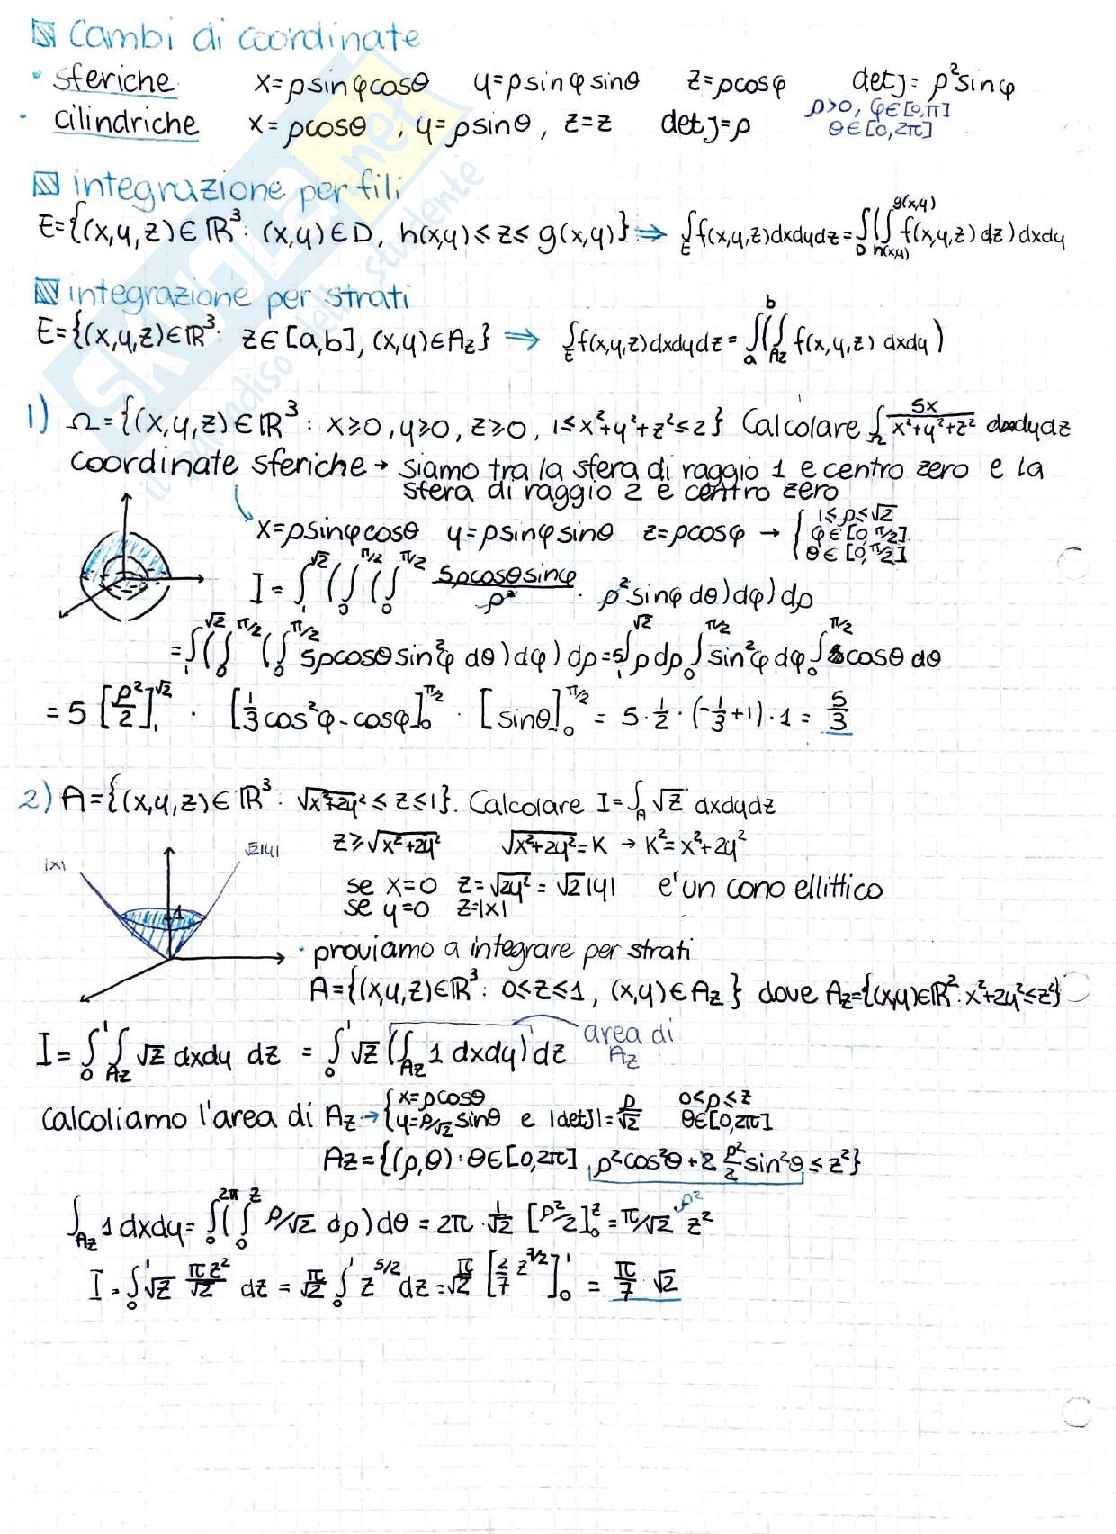 Cambi di coordinate
• sferiche x=ρsinφcosθ y=ρsinφsinθ z=ρcosφ detJ= ρ²sinφ
• cilindriche x=ρcosθ, y=ρsinθ, z=z detJ=ρ ρ>0, φ∈[0,π]
θ∈[0,2π]
integrazione per fili
E={(x,y,z)∈ℝ³: (x,y)∈D, h(x,y)≤z≤g(x,y)} ⇒ ∫_E f(x,y,z)dxdydz=∫_D(∫_{h(x,y)}^{g(x,y)} f(x,y,z)dz)dxdy
integrazione per strati
E={(x,y,z)∈ℝ³: z∈[a,b],(x,y)∈Az} ⇒ ∫_E f(x,y,z)dxdydz=∫_a^b(∫_{Az} f(x,y,z) dxdy)
1) Ω={(x,y,z)∈ℝ³: x≥0,y≥0,z≥0, 1≤x²+y²+z²≤2} Calcolare ∫_Ω 5x/(x²+y²+z²) dxdydz
coordinate sferiche → siamo tra la sfera di raggio 1 e centro zero e la
sfera di raggio 2 e centro zero
x=ρsinφcosθ y=ρsinφsinθ z=ρcosφ → { 1≤ρ≤√2
φ∈[0,π/2]
θ∈[0,π/2]
I=∫_1^{√2}(∫_0^{π/2}(∫_0^{π/2} 5ρcosθsinφ/ρ² · ρ²sinφ dθ)dφ)dρ
=∫_1^{√2}(∫_0^{π/2}(∫_0^{π/2} 5ρcosθsin²φ dθ)dφ)dρ=5∫_1^{√2} ρdρ∫_0^{π/2} sin²φdφ∫_0^{π/2} cosθdθ
=5[ρ²/2]_1^{√2} · [1/3cos²φ-cosφ]_0^{π/2} · [sinθ]_0^{π/2} = 5·1/2·(-1/3+1)·1= 5/3
2) A={(x,y,z)∈ℝ³: √x²+2y² ≤z≤1}. Calcolare I=∫_A √z dxdydz
z≥√x²+2y² √x²+2y²=K → K²=x²+2y²
|x| √2|y|
se x=0 z=√2y²=√2|y| e'un cono ellittico
se y=0 z=|x|
1
• proviamo a integrare per strati
A={(x,y,z)∈ℝ³: 0≤z≤1, (x,y)∈Az} dove Az={(x,y)∈ℝ²:x²+2y²≤z²}
I=∫_0^1∫_{Az} √z dxdy dz = ∫_0^1 √z(∫_{Az} 1 dxdy)dz area di
Az
calcoliamo l'area di Az→{x=ρcosθ
y=ρ/√2 sinθ e |detJ|=ρ/√2 0≤ρ≤z
θ∈[0,2π]
Az={(ρ,θ): θ∈[0,2π], ρ²cos²θ+2 ρ²/2 sin²θ≤z²}
ρ²
∫_{Az} 1dxdy=∫_0^{2π}(∫_0^z ρ/√2 dρ)dθ=2π·1/√2 [ρ²/2]_0^z=π/√2 z²
I=∫_0^1 √z πz²/√2 dz = π/√2 ∫_0^1 z^{5/2}dz=π/√2 [2/7 z^{7/2}]_0^1 = π/7·√2